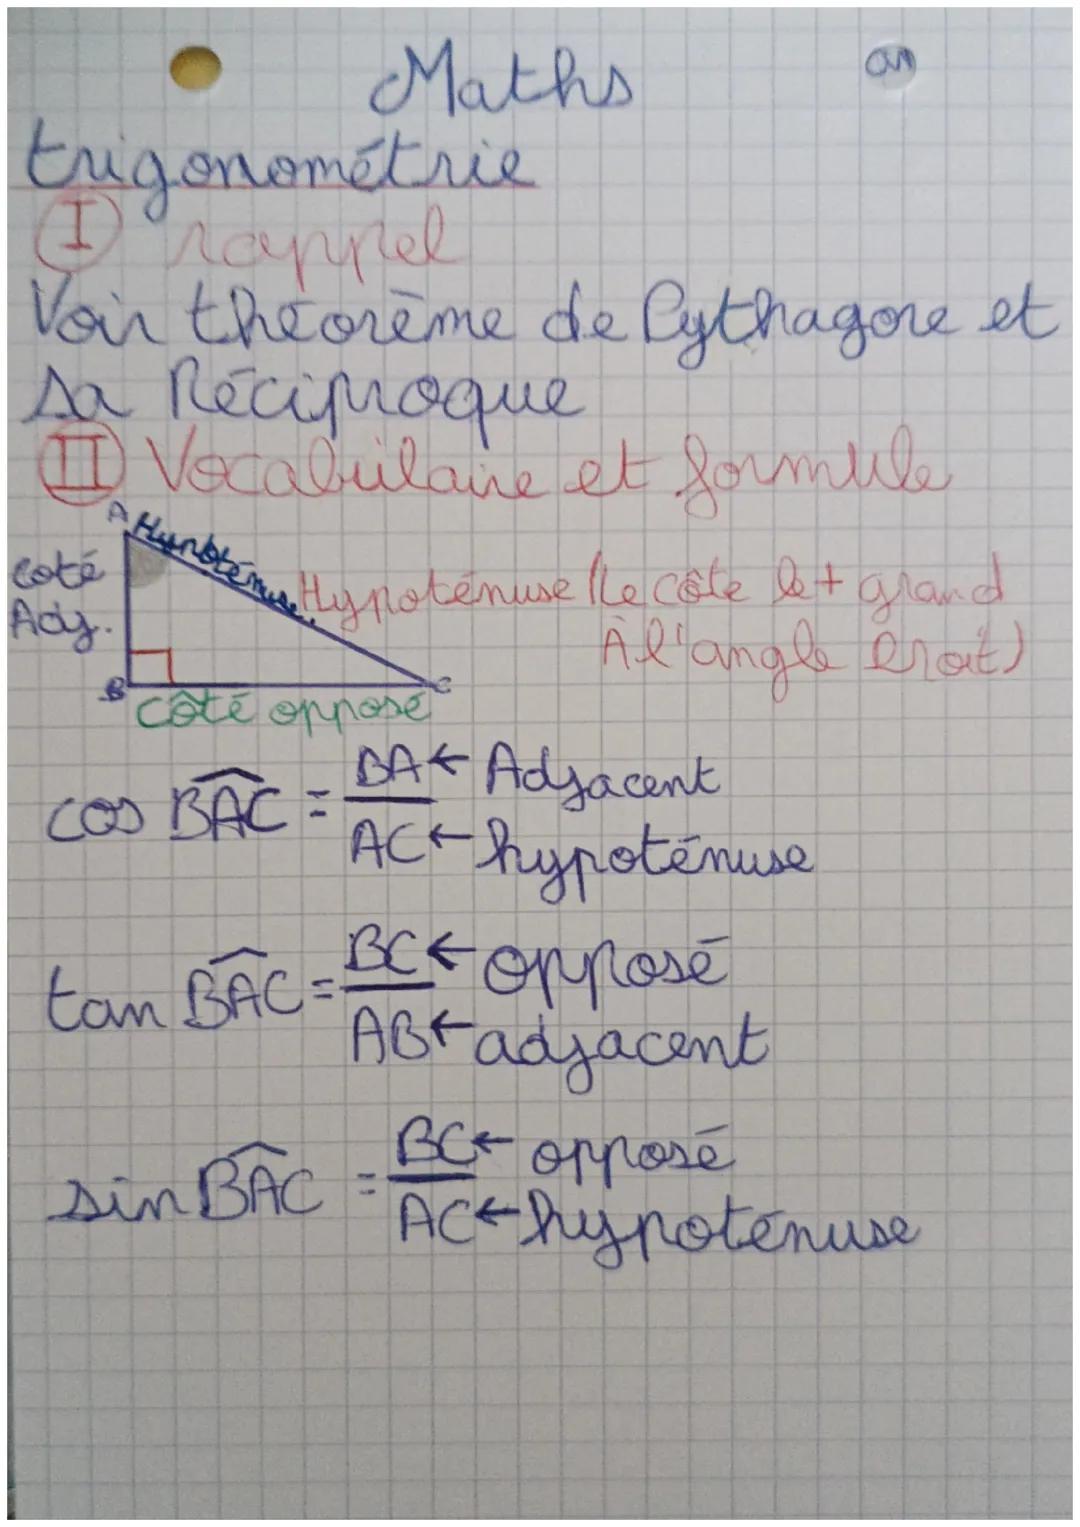 Maths
trigonométrie
I rappel
Voir théorème de Pythagore et
sa Réciproque
II Vocabulaire et formule
A Hypoténuse
coté
Adj.
Hypoténuse (le côté le + grand
À l'angle Droit)
B
C
côté opposé
cos BAC = BA ← Adjacent
AC ← hypoténuse
tan BAC = BC ← opposé
AB ← adjacent
sin BAC = BC ← opposé
AC ← hypoténuse